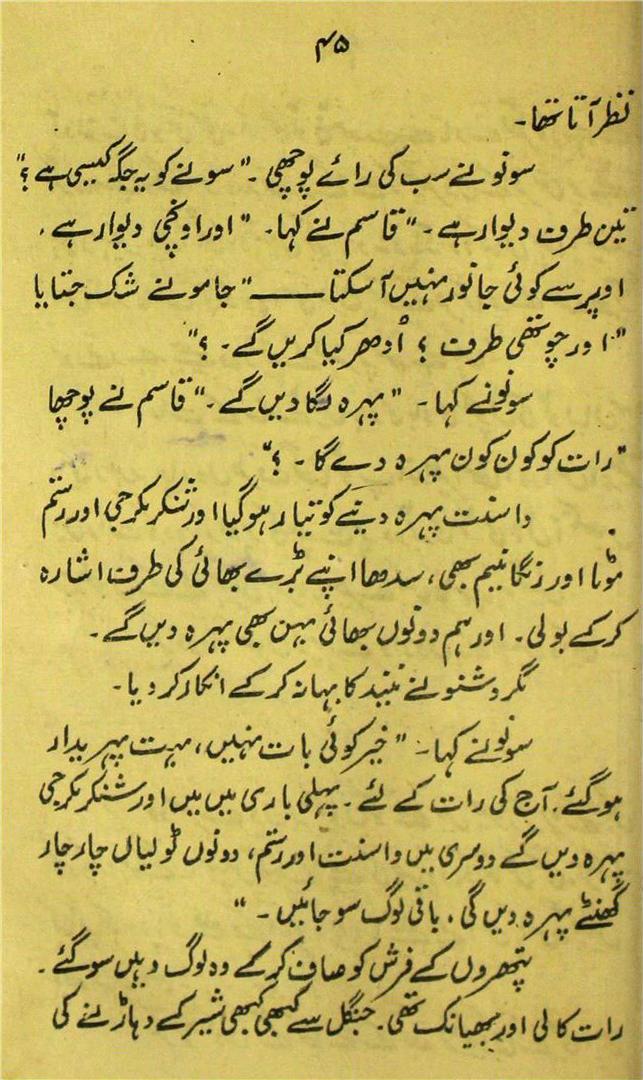 ۴۵
نظر آتا تھا۔
سونو نے سب کی رائے پوچھی۔ "سونے کو یہ جگہ کیسی ہے؟"
تین طرف دیوار ہے۔" قاسم نے کہا۔ "اور اونچی دیوار ہے،
اوپر سے کوئی جانور نہیں آ سکتا ——" جامو نے شک جتایا
"اور چوتھی طرف؟ اُدھر کیا کریں گے۔؟"
سونو نے کہا۔ "پہرہ لگا دیں گے۔" قاسم نے پوچھا
"رات کو کون کون پہرہ دے گا۔؟"
واسنت پہرہ دینے کو تیار ہو گیا اور شنکر مکرجی اور رستم
موٹا اور رنگا نیم بھی، سدھا اپنے بڑے بھائی کی طرف اشارہ
کر کے بولی۔ اور ہم دونوں بھائی بہن بھی پہرہ دیں گے۔
مگر وشنو نے نیند کا بہانہ کر کے انکار کر دیا۔
سونو نے کہا۔ "خیر کوئی بات نہیں، بہت پہریدار
ہو گئے۔ آج کی رات کے لئے۔ پہلی باری میں میں اور شنکر مکرجی
پہرہ دیں گے دوسری میں واسنت اور رستم، دونوں ٹولیاں چار چار
گھنٹے پہرہ دیں گی۔ باقی لوگ سو جائیں۔"
پتھروں کے فرش کو صاف کر کے وہ لوگ وہیں سو گئے۔
رات کالی اور بھیانک تھی۔ جنگل سے کبھی کبھی شیر کے دہاڑنے کی